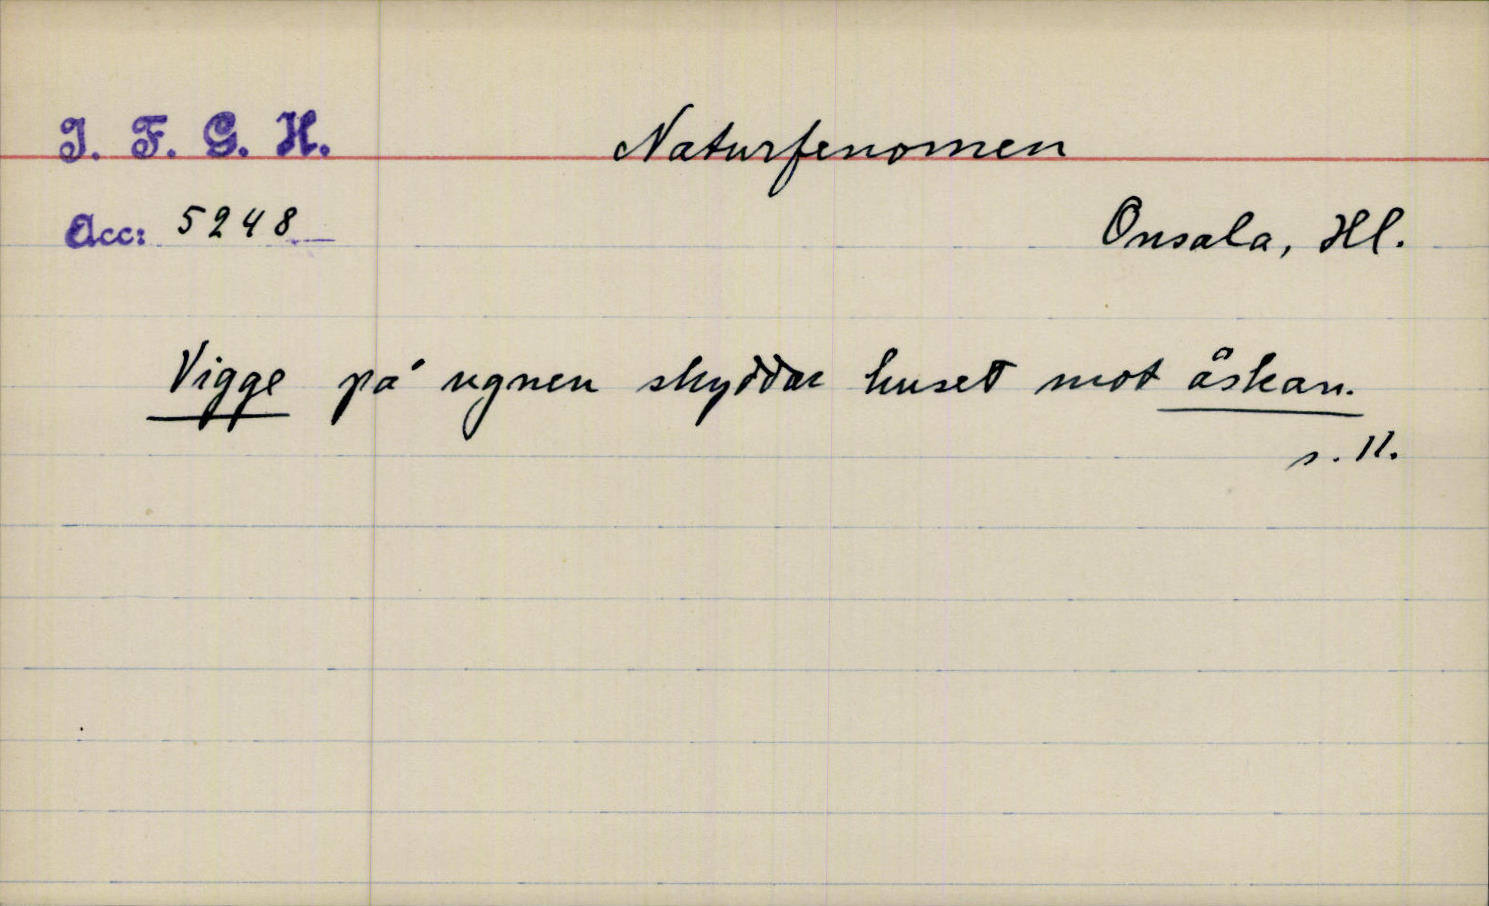 I. F. G. H.
Naturfenomen
Acc: 5248
Onsala, Hl.
Vigge på ugnen skyddar huset mot åskan.
s. 11.